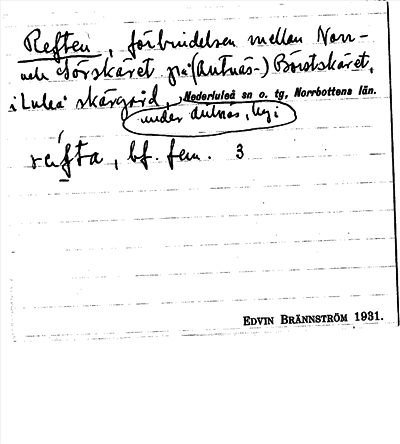 Reften, förbindelsen mellan Norr-
och Sörskäret på (Antnäs-) Börstskäret,
i Luleå skärgård, Nederluleå sn o. tg, Norrbottens län.
under Antnäs, hg:
refta, bf. fem. 3
EDVIN BRÄNNSTRÖM 1931.